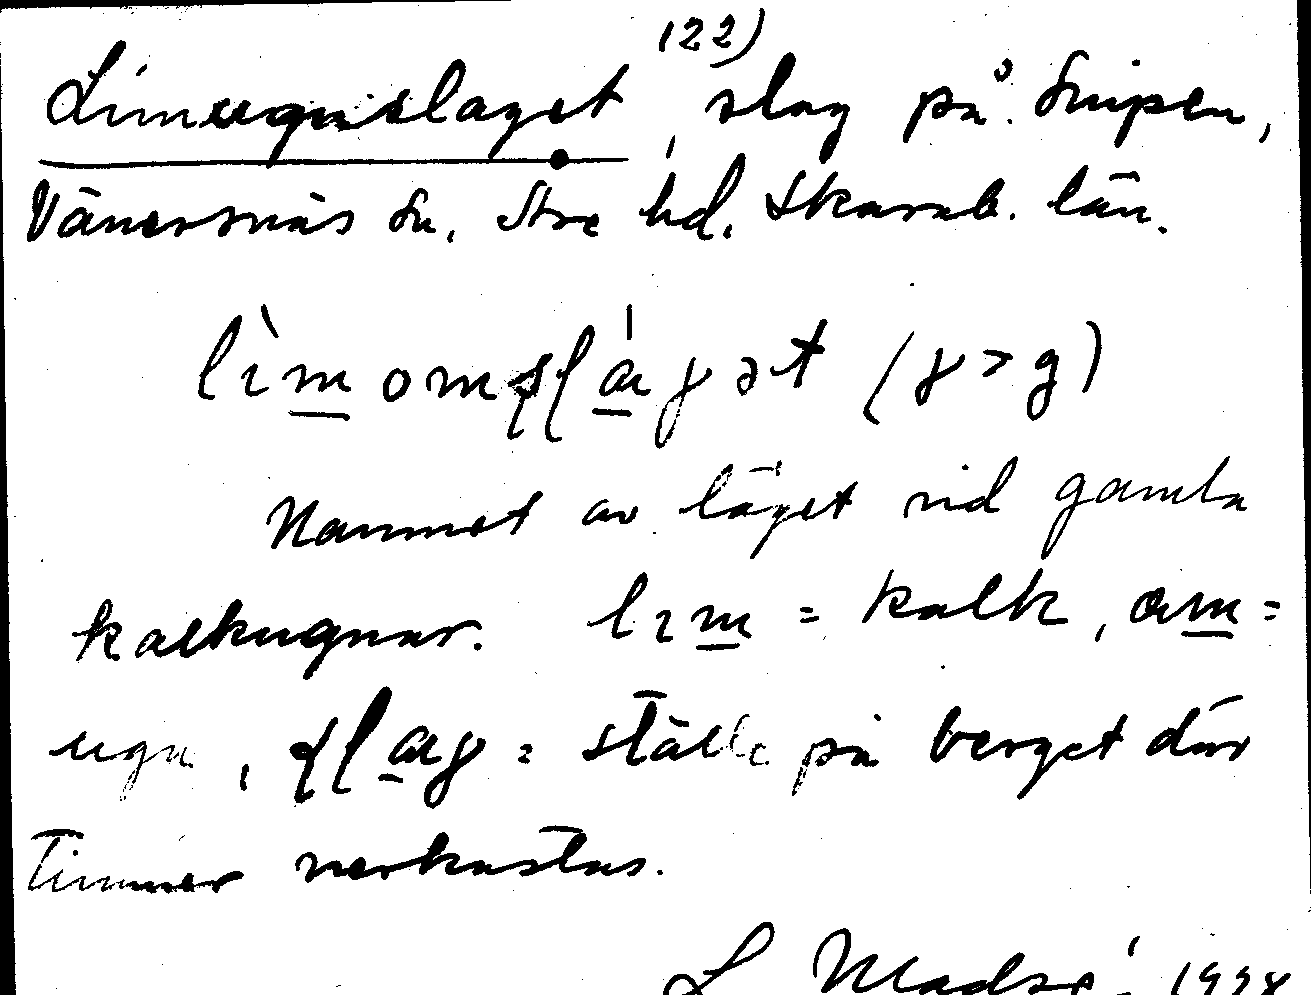 Limugnslaget 122), slag på Snipen,
Vänersnäs sn, Åse hd. Skarab. län.
lìmomslágət (ɣ > g)
Namnet av läget vid gamla
kalkugnar. lım = kalk, om =
ugn, slaɣ = ställe på berget där
Timmer nerkastas.
L Madsé 1928